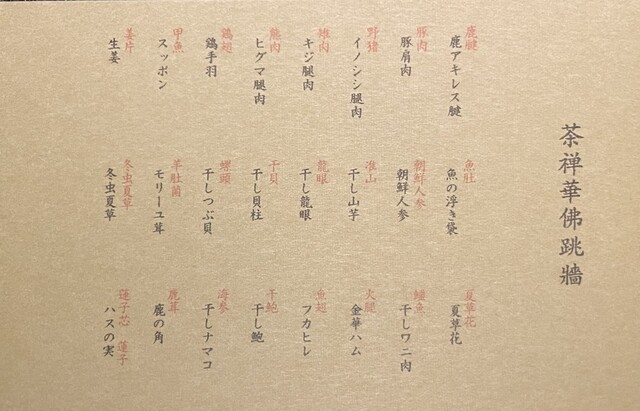 茶禅華佛跳牆
鹿腱
鹿アキレス腱
豚肉
豚肩肉
野猪
イノシシ腿肉
雉肉
キジ腿肉
熊肉
ヒグマ腿肉
鶏翅
鶏手羽
甲魚
スッポン
姜片
生姜
魚肚
魚の浮き袋
朝鮮人参
朝鮮人参
淮山
干し山芋
龍眼
干し龍眼
干貝
干し貝柱
螺頭
干しつぶ貝
羊肚菌
モリーユ茸
冬虫夏草
冬虫夏草
夏草花
夏草花
鰐魚
干しワニ肉
火腿
金華ハム
魚翅
フカヒレ
干鮑
干し鮑
海参
干しナマコ
鹿茸
鹿の角
蓮子芯 蓮子
ハスの実